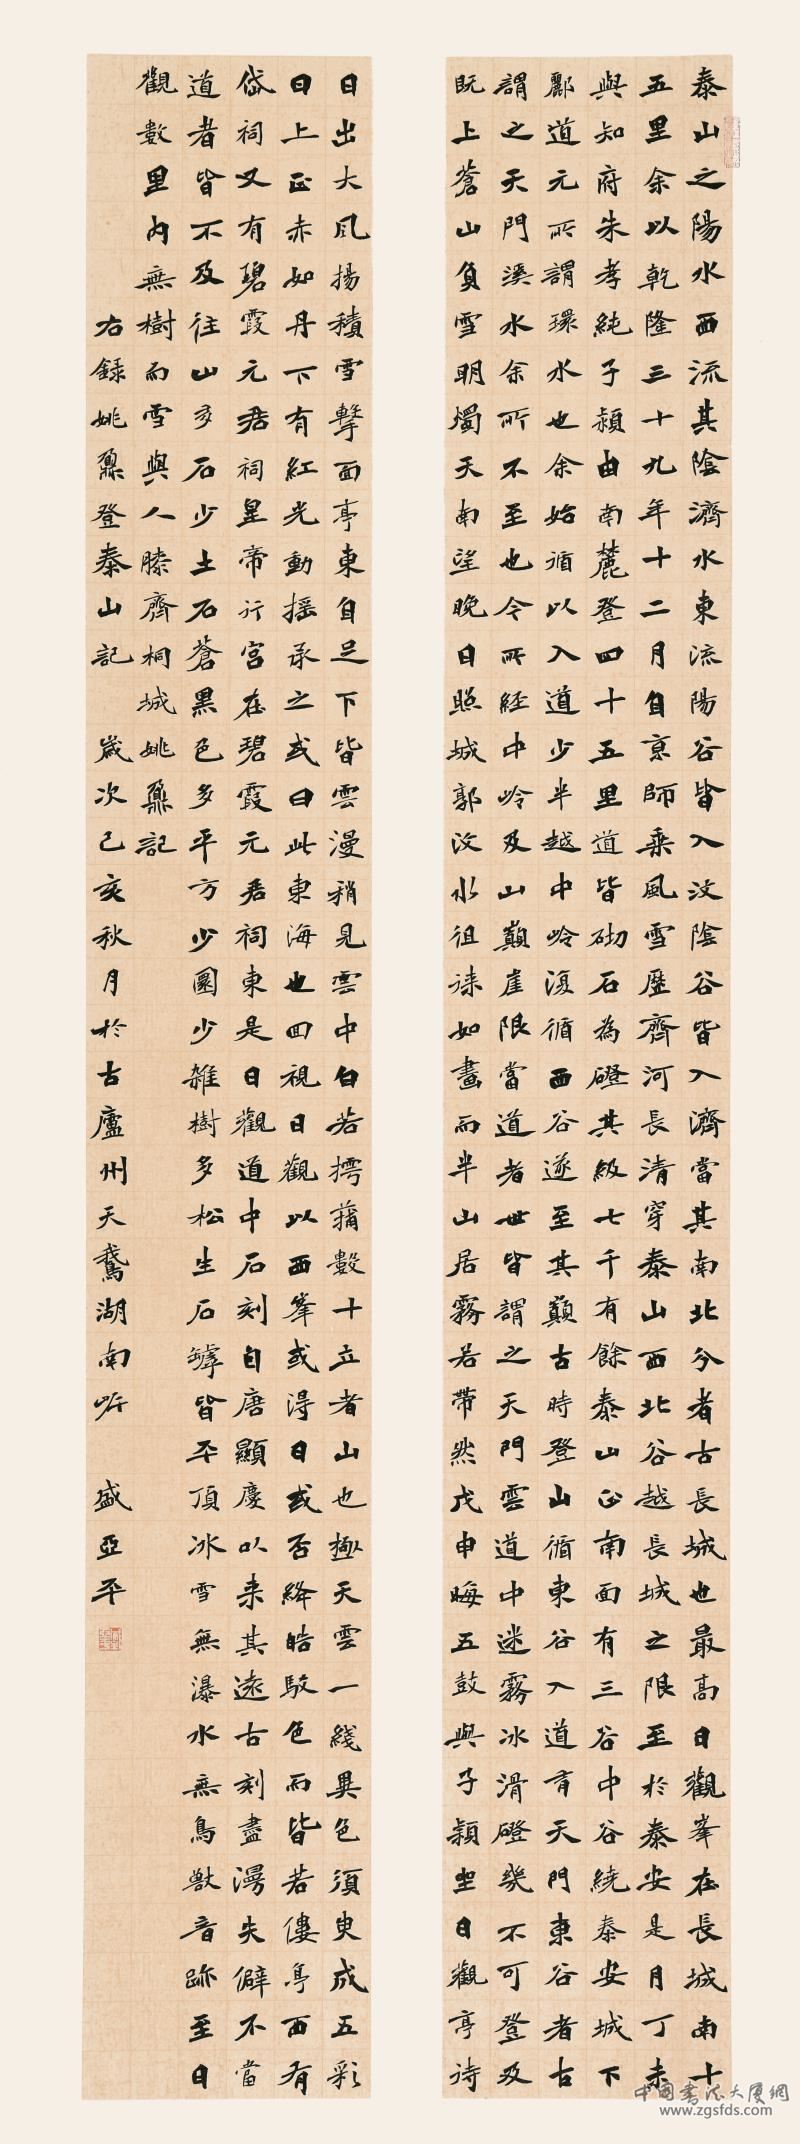 泰山之陽水西流其陰濟水東流陽谷皆入汶陰谷皆入濟當其南北分者古長城也最高日觀峯在長城南十
五里余以乾隆三十九年十二月自京師乘風雪歷齊河長清穿泰山西北谷越長城之限至於泰安是月丁未
與知府朱孝純子潁由南麓登四十五里道皆砌石為磴其級七千有餘泰山正南面有三谷中谷繞泰安城下
酈道元所謂環水也余始循以入道少半越中嶺復循西谷遂至其巔古時登山循東谷入道有天門東谷者古
謂之天門溪水余所不至也今所經中岭及山巔崖限當道者世皆謂之天門雲道中迷霧冰滑磴幾不可登及
既上蒼山負雪明燭天南望晚日照城郭汶水徂徠如畫而半山居霧若帶然戊申晦五鼓與子潁坐日觀亭待
日出大風揚積雪擊面亭東自足下皆雲漫稍見雲中白若摴蒱數十立者山也極天雲一綫異色須臾成五彩
日上正赤如丹下有紅光動搖承之或曰此東海也回視日觀以西峯或得日或否絳皓駁色而皆若僂亭西有
岱祠又有碧霞元君祠皇帝行宮在碧霞元君祠東是日觀道中石刻自唐顯慶以來其遠古刻盡漫失僻不當
道者皆不及往山多石少土石蒼黑色多平方少圜少雜樹多松生石罅皆平頂冰雪無瀑水無鳥獸音跡至日
觀數里內無樹而雪與人膝齊桐城姚鼐記
右録姚鼐登泰山記 歲次己亥秋月於古廬州天鵝湖南畔 盛亞平
中國書法大廈網
www.zgsfds.com